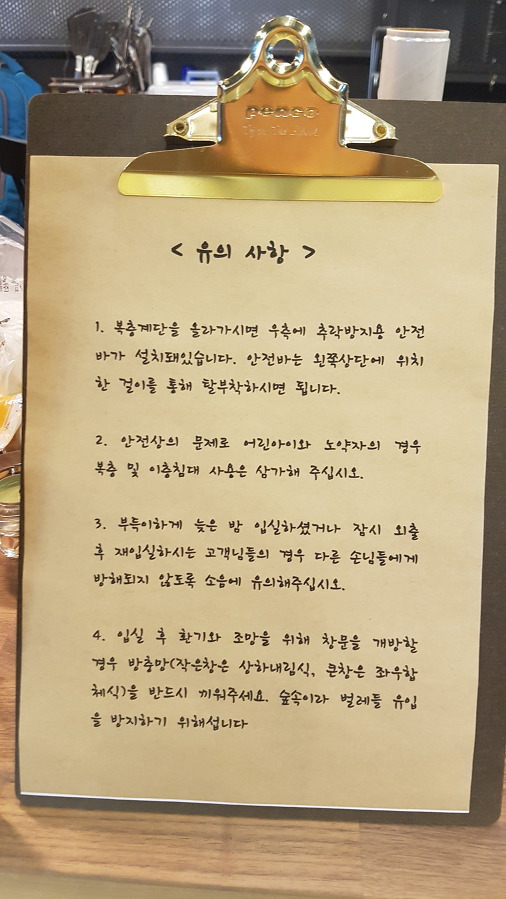 peace
< 유의 사항 >
1. 복층계단을 올라가시면 우측에 추락방지용 안전
바가 설치돼있습니다. 안전바는 왼쪽상단에 위치
한 걸이를 통해 탈부착하시면 됩니다.
2. 안전상의 문제로 어린아이와 노약자의 경우
복층 및 이층침대 사용은 삼가해 주십시오.
3. 부득이하게 늦은 밤 입실하셨거나 잠시 외출
후 재입실하시는 고객님들의 경우 다른 손님들에게
방해되지 않도록 소음에 유의해주십시오.
4. 입실 후 환기와 조망을 위해 창문을 개방할
경우 방충망(작은창은 상하내림식, 큰창은 좌우합
체식)을 반드시 끼워주세요. 숲속이라 벌레들 유입
을 방지하기 위해섭니다